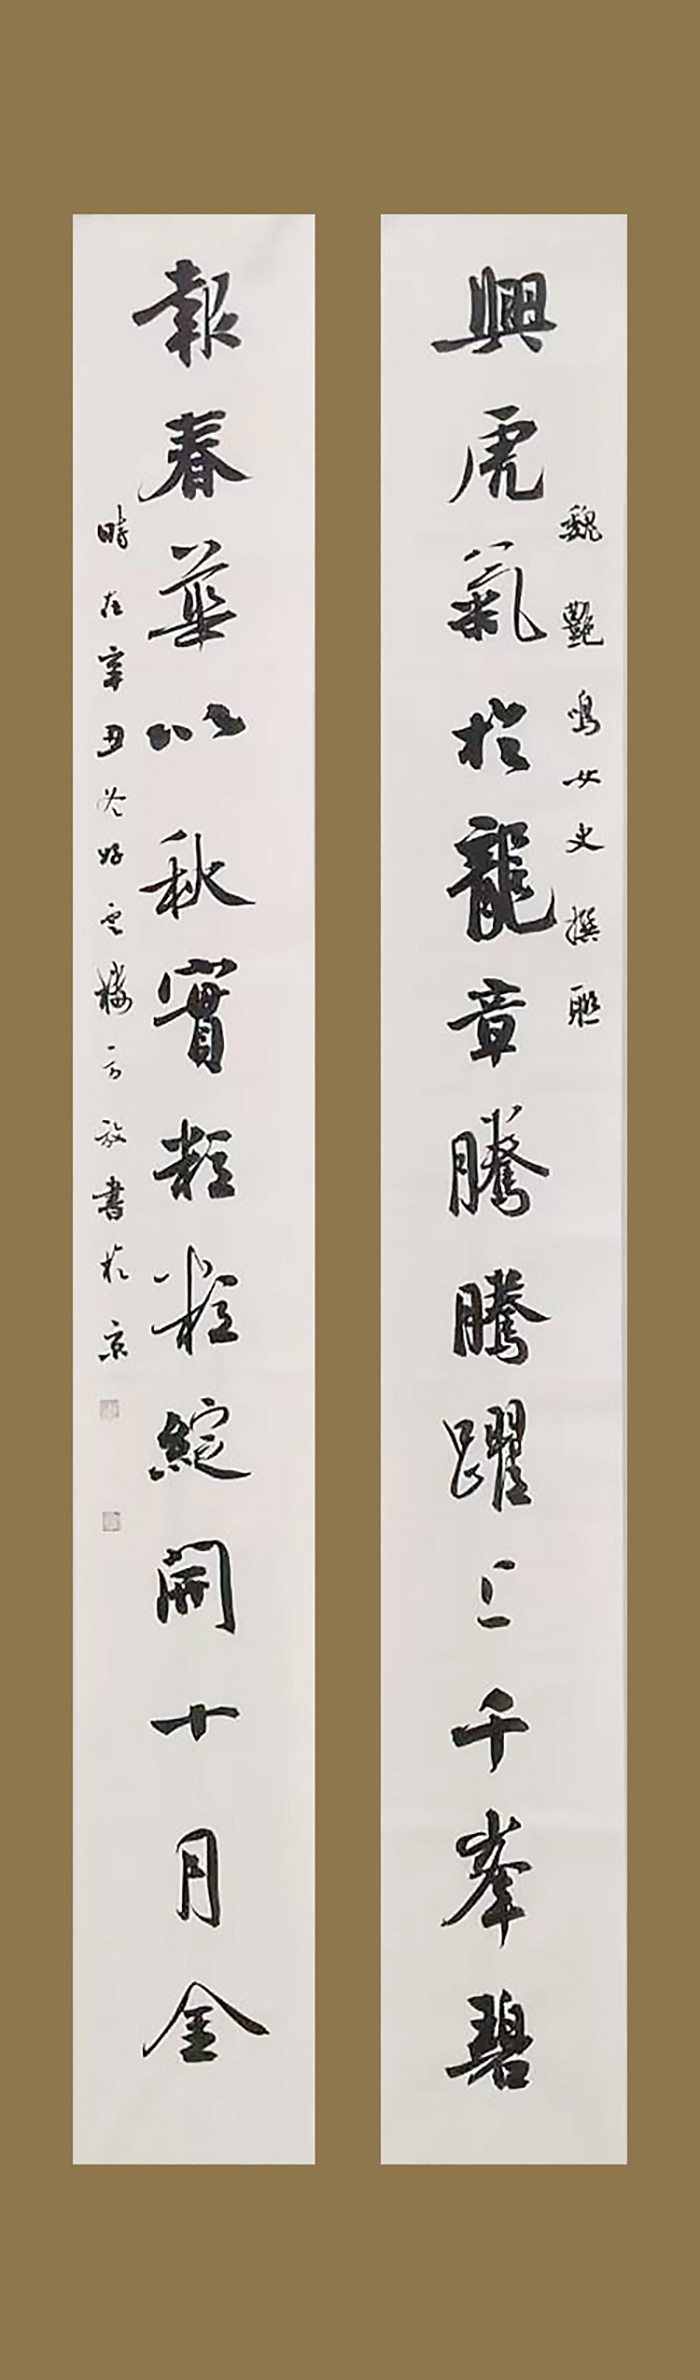 興虎氣於龍章騰騰躍上千峯碧
魏艷鳴女史撰聯
報春華以秋實粒粒綻開十月金
時在辛丑冬好雲樓方放書於京